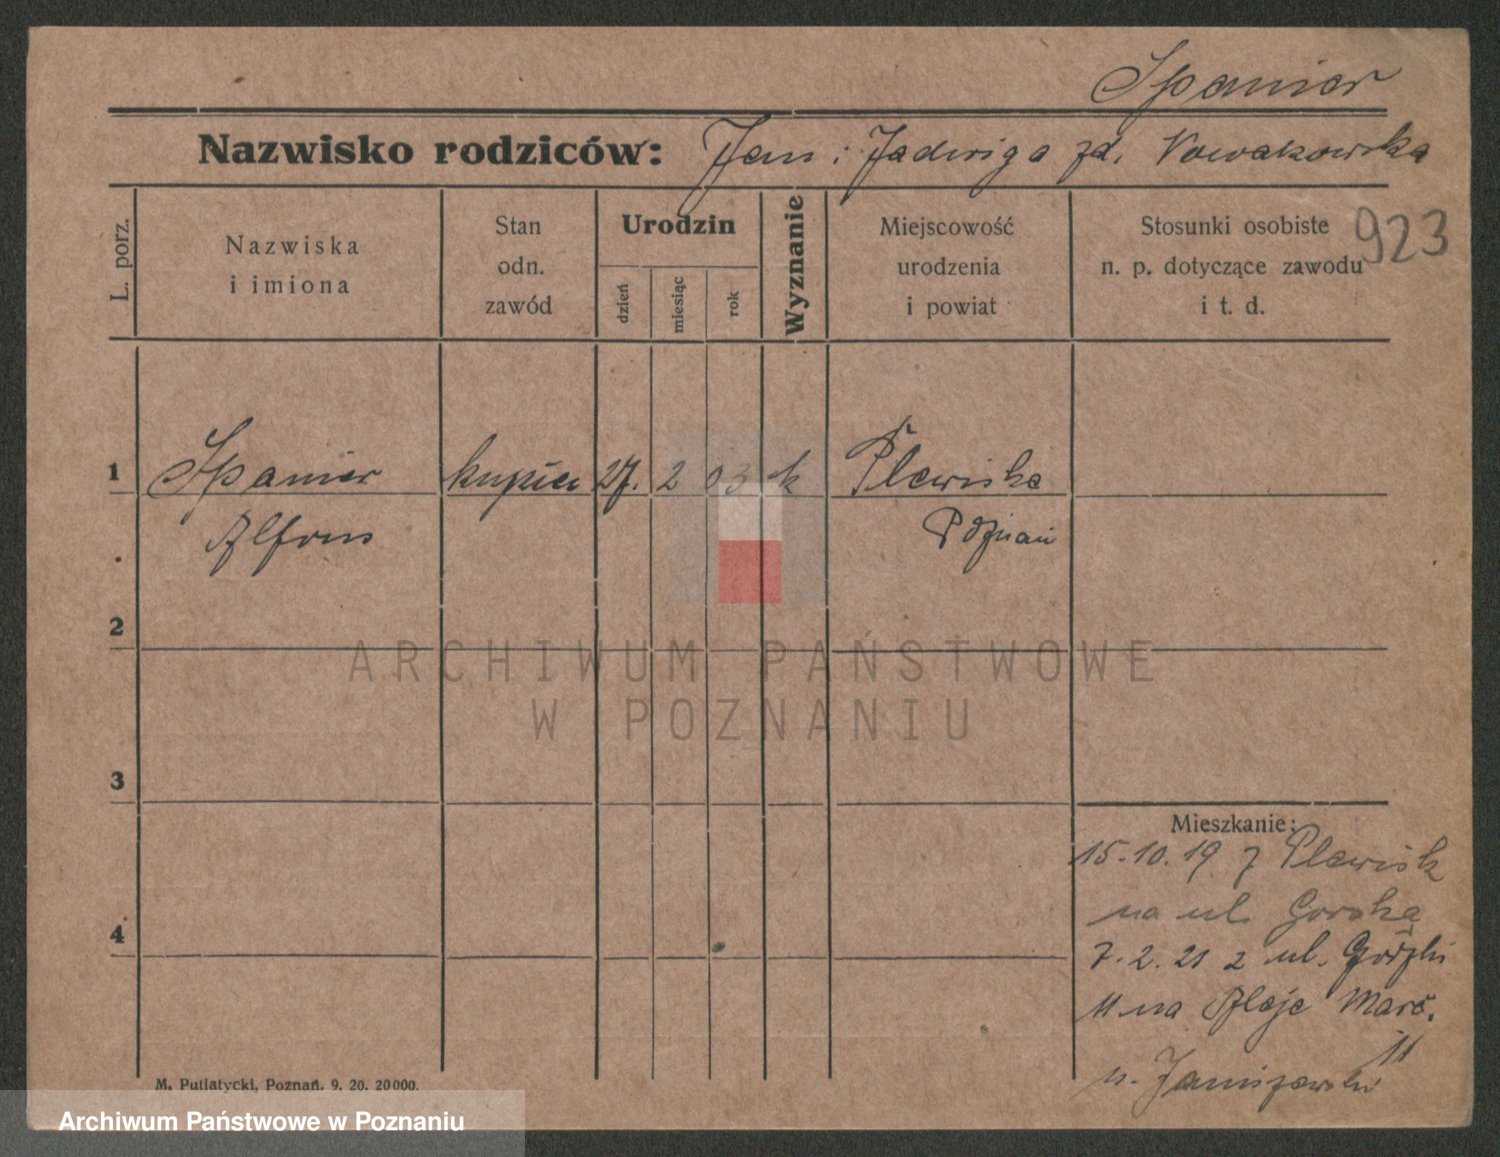 Spanier
Nazwisko rodziców: Jan i Jadwiga zd. Nowakowska
L. porz.
Nazwiska
i imiona
Stan
odn.
zawód
Urodzin
dzień
miesiąc
rok
Wyznanie
Miejscowość
urodzenia
i powiat
Stosunki osobiste
n. p. dotyczące zawodu
i t. d.
923
1 Spanier kupiec 27. 2 03 k Plewiska
Alfons Poznań
2
ARCHIWUM PAŃSTWOWE
W POZNANIU
3
Mieszkanie:
15.10.19 z Plewisk
na ul. Gorską
4
7.2.21 z ul.
11 na Aleje Marc.
11
u. Janiszewski
M. Putiatycki, Poznań. 9. 20. 20000.
Archiwum Państwowe w Poznaniu